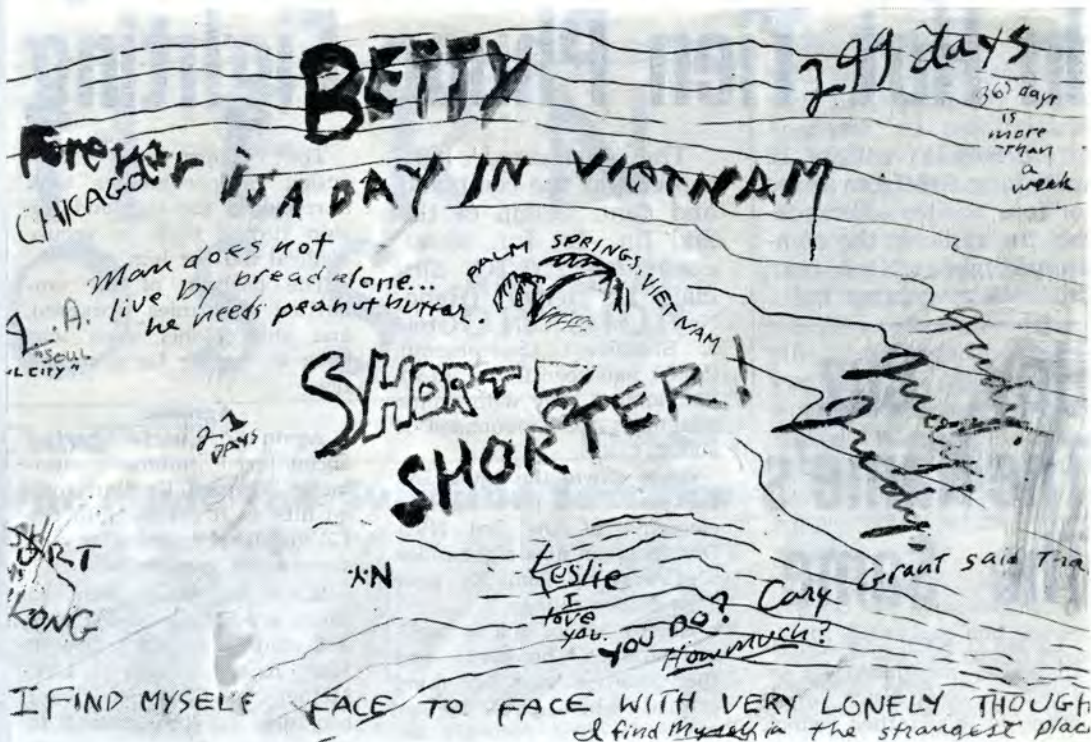 BETTY
299 days
365 days
is
more
than
a
week
Forever is A DAY IN VIETNAM
CHICAGO
Man does not
live by bread alone...
he needs peanut butter.
PALM SPRINGS, VIET NAM
L.A.
"SOUL
CITY"
SHORT
SHORTER!
21
DAYS
Judy
Judy
Judy
Grant said
Cary
KONG
Leslie
I
love
you.
YOU DO?
How much?
I FIND MYSELF FACE TO FACE WITH VERY LONELY THOUGH
I find Myself in the strangest plac